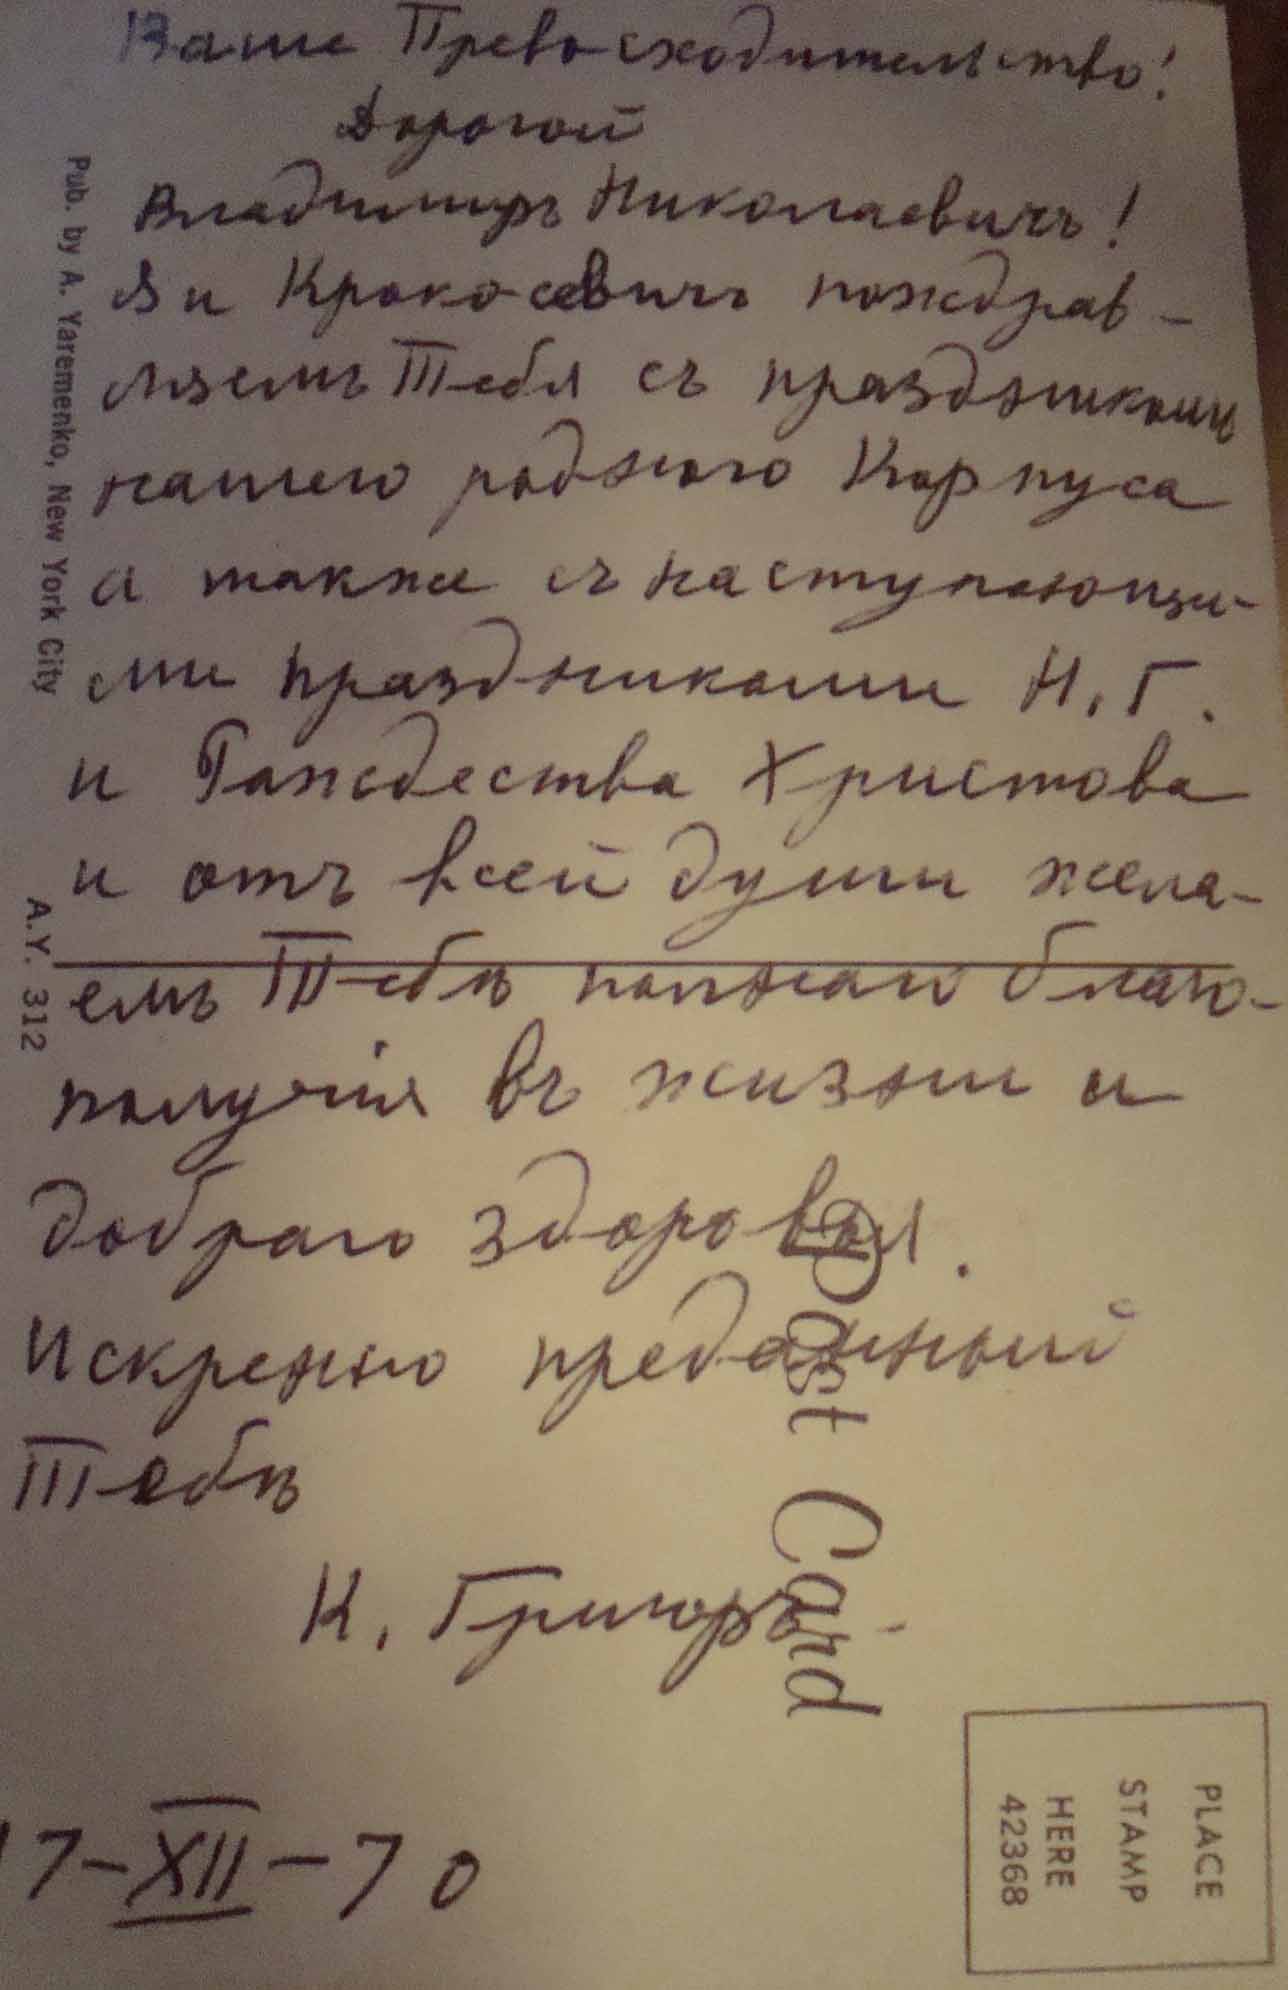 Ваше Превосходительство!
Дорогой
Владимиръ Николаевичъ!
Я и Крокосевичъ пождрав-
ляемъ Тебя съ праздникомъ
нашего родного Корпуса
а также съ наступающи-
ми праздниками Н. Г.
и Раждества Христова
и отъ всей души жела-
емъ Тебѣ полнаго благо-
получія въ жизни и
добраго здоровья.
Искренно преданный
Тебѣ
К. Григоръ
17-XII-70
Pub. by A. Yaremenko, New York City
A.Y. 312
Post Card
PLACE
STAMP
HERE
42368